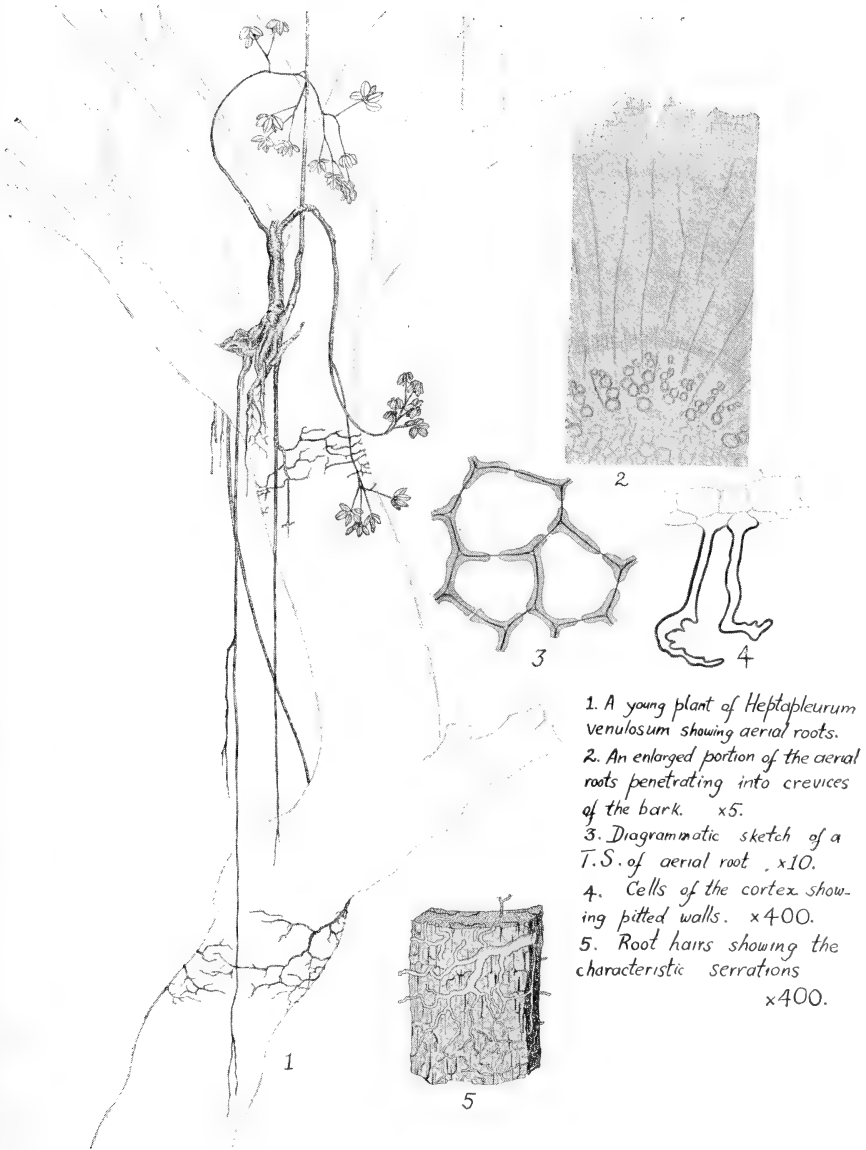 2
3
4
1. A young plant of Heptapleurum
venulosum showing aerial roots.
2. An enlarged portion of the aerial
roots penetrating into crevices
of the bark. x5.
3. Diagrammatic sketch of a
T.S. of aerial root . x10.
4. Cells of the cortex show-
ing pitted walls. x400.
5. Root hairs showing the
characteristic serrations
x400.
1
5